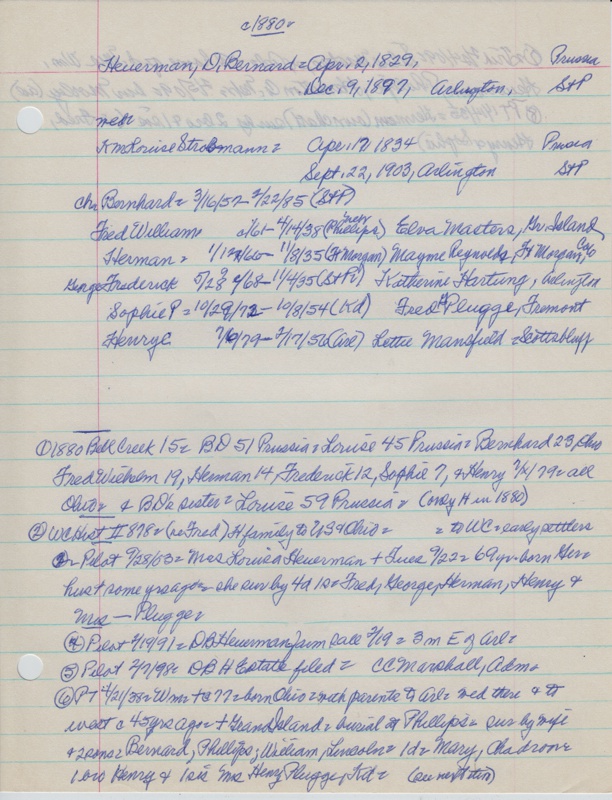 c1880=
Heuerman, D. Bernard = Apr. 2, 1829, Prussia
Dec. 9, 1897, Arlington, StP
wed=
K m Louise Strobmann = Apr. 17, 1834 Prussia
Sept. 22, 1903, Arlington StP
ch= Bernhard = 3/16/57 - 2/22/85 (StP)
Fred William = 61 - 4/14/38 (Phillips) Nebr Elva Masters, Gr. Island
Herman = 11/8/35 (Ft Morgan) Mayme Reynolds, Ft Morgan, Colo
George Frederick 68 - 11/4/35 (StP) Katherine Hartung, Arlington
Sophie P = 10/29/72 - 10/8/54 (Kd) Fred Plugge, Fremont
Henry C 79 - 2/17/56 (Arl) Lottie Mansfield = Scottsbluff
① 1880 Bell Creek 15 = BD 51 Prussia = Louise 45 Prussia = Bernhard 23, Ohio
Fred Wilhelm 19, Herman 14, Frederick 12, Sophie 7, & Henry 79 = all
Ohio = & BD's sister = Louise 59 Prussia = (only H in 1880)
② WC Hist II 878 = (re Fred) H family to USA Ohio = = to WC = early settlers
Pilot 9/28/03 = Mrs. Louisa Heuerman + Tues 9/22 = 69 yr = born Ger =
husb some yrs ago = she sur by 4 s = Fred, George, Herman, Henry &
Mrs — Plugge =
④ Pilot 2/19/91 = DB Heuerman farm sale 2/19 = 3 m E of Arl =
⑤ Pilot 2/7/98 = DBH Estate filed = CC Marshall, Adm =
⑥ PT 4/21/38 = Wm + @ 77 = born Ohio = with parents to Arl = wed there & to
west c 45 yrs ago = + Grand Island = burial at Phillips = sur by wife
& 2 sons = Bernard, Phillips; William, Lincoln = 1d = Mary, Chadron =
1 bro Henry & 1 sis Mrs Henry Plugge, Kd = (see next item)